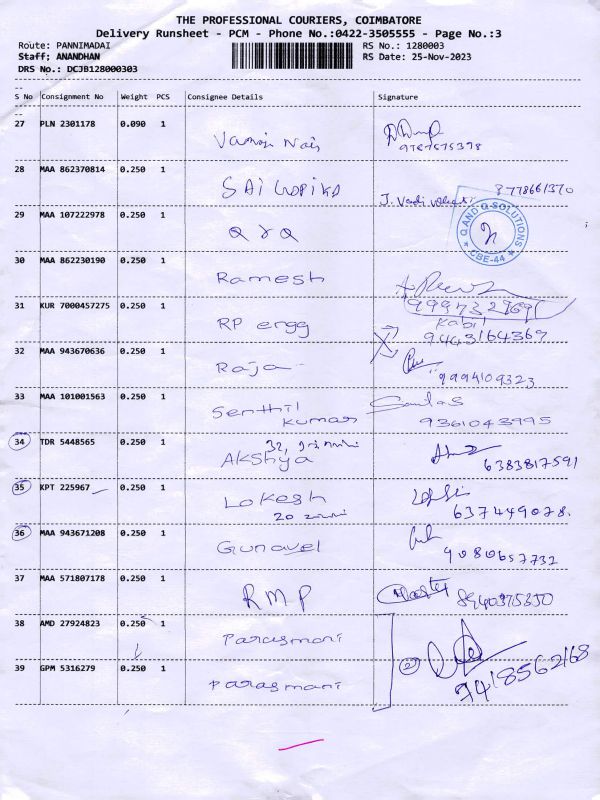 THE PROFESSIONAL COURIERS, COIMBATORE
Delivery Runsheet - PCM - Phone No.:0422-3505555 - Page No.:3
Route: PANNIMADAI RS No.: 1280003
Staff; ANANDHAN RS Date: 25-Nov-2023
DRS No.: DCJB128000303
S No Consignment No Weight PCS Consignee Details Signature
27 PLN 2301178 0.090 1
28 MAA 862370814 0.250 1 SAI GOPIKA
29 MAA 107222978 0.250 1 Q & Q
Q AND Q SOLUTIONS
★ CBE-44 ★
30 MAA 862230190 0.250 1 Ramesh
31 KUR 7000457275 0.250 1 RP engg Kabil
9443164367
32 MAA 943670636 0.250 1 Raja
9994109323
33 MAA 101001563 0.250 1 Senthil
Kumar 9361043995
34 TDR 5448565 0.250 1 Akshya
6383817591
35 KPT 225967 0.250 1 Lokesh
637449078.
36 MAA 943671208 0.250 1 Gunavel
9080657732
37 MAA 571807178 0.250 1 RMP
38 AMD 27924823 0.250 1 Parasmani
39 GPM 5316279 0.250 1 Parasmani
2
7418562168